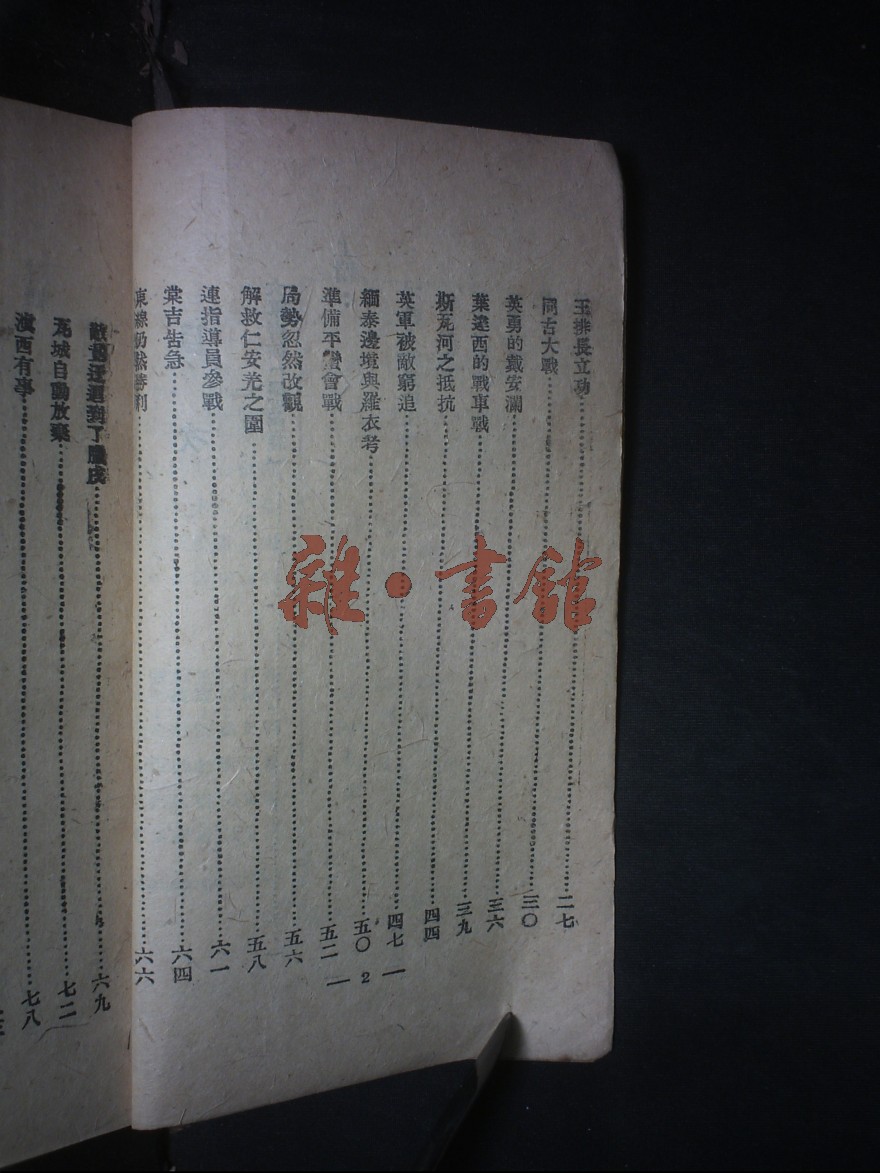 王排長立功……二七
同古大戰……三〇
英勇的戴安瀾……三六
葉達西的戰車戰……三九
斯瓦河之抵抗……四四
英軍被敵窮追……四七
緬泰邊境與羅衣考……五〇
準備平蠻會戰……五二
局勢忽然改觀……五六
解救仁安羌之圍……五八
連指導員參戰……六一
棠吉告急……六四
東線仍然勝利……六六
— 2 —
敵迂迴到了臘戌……六九
瓦城自動放棄……七二
滇西有事……七八
雜·書館